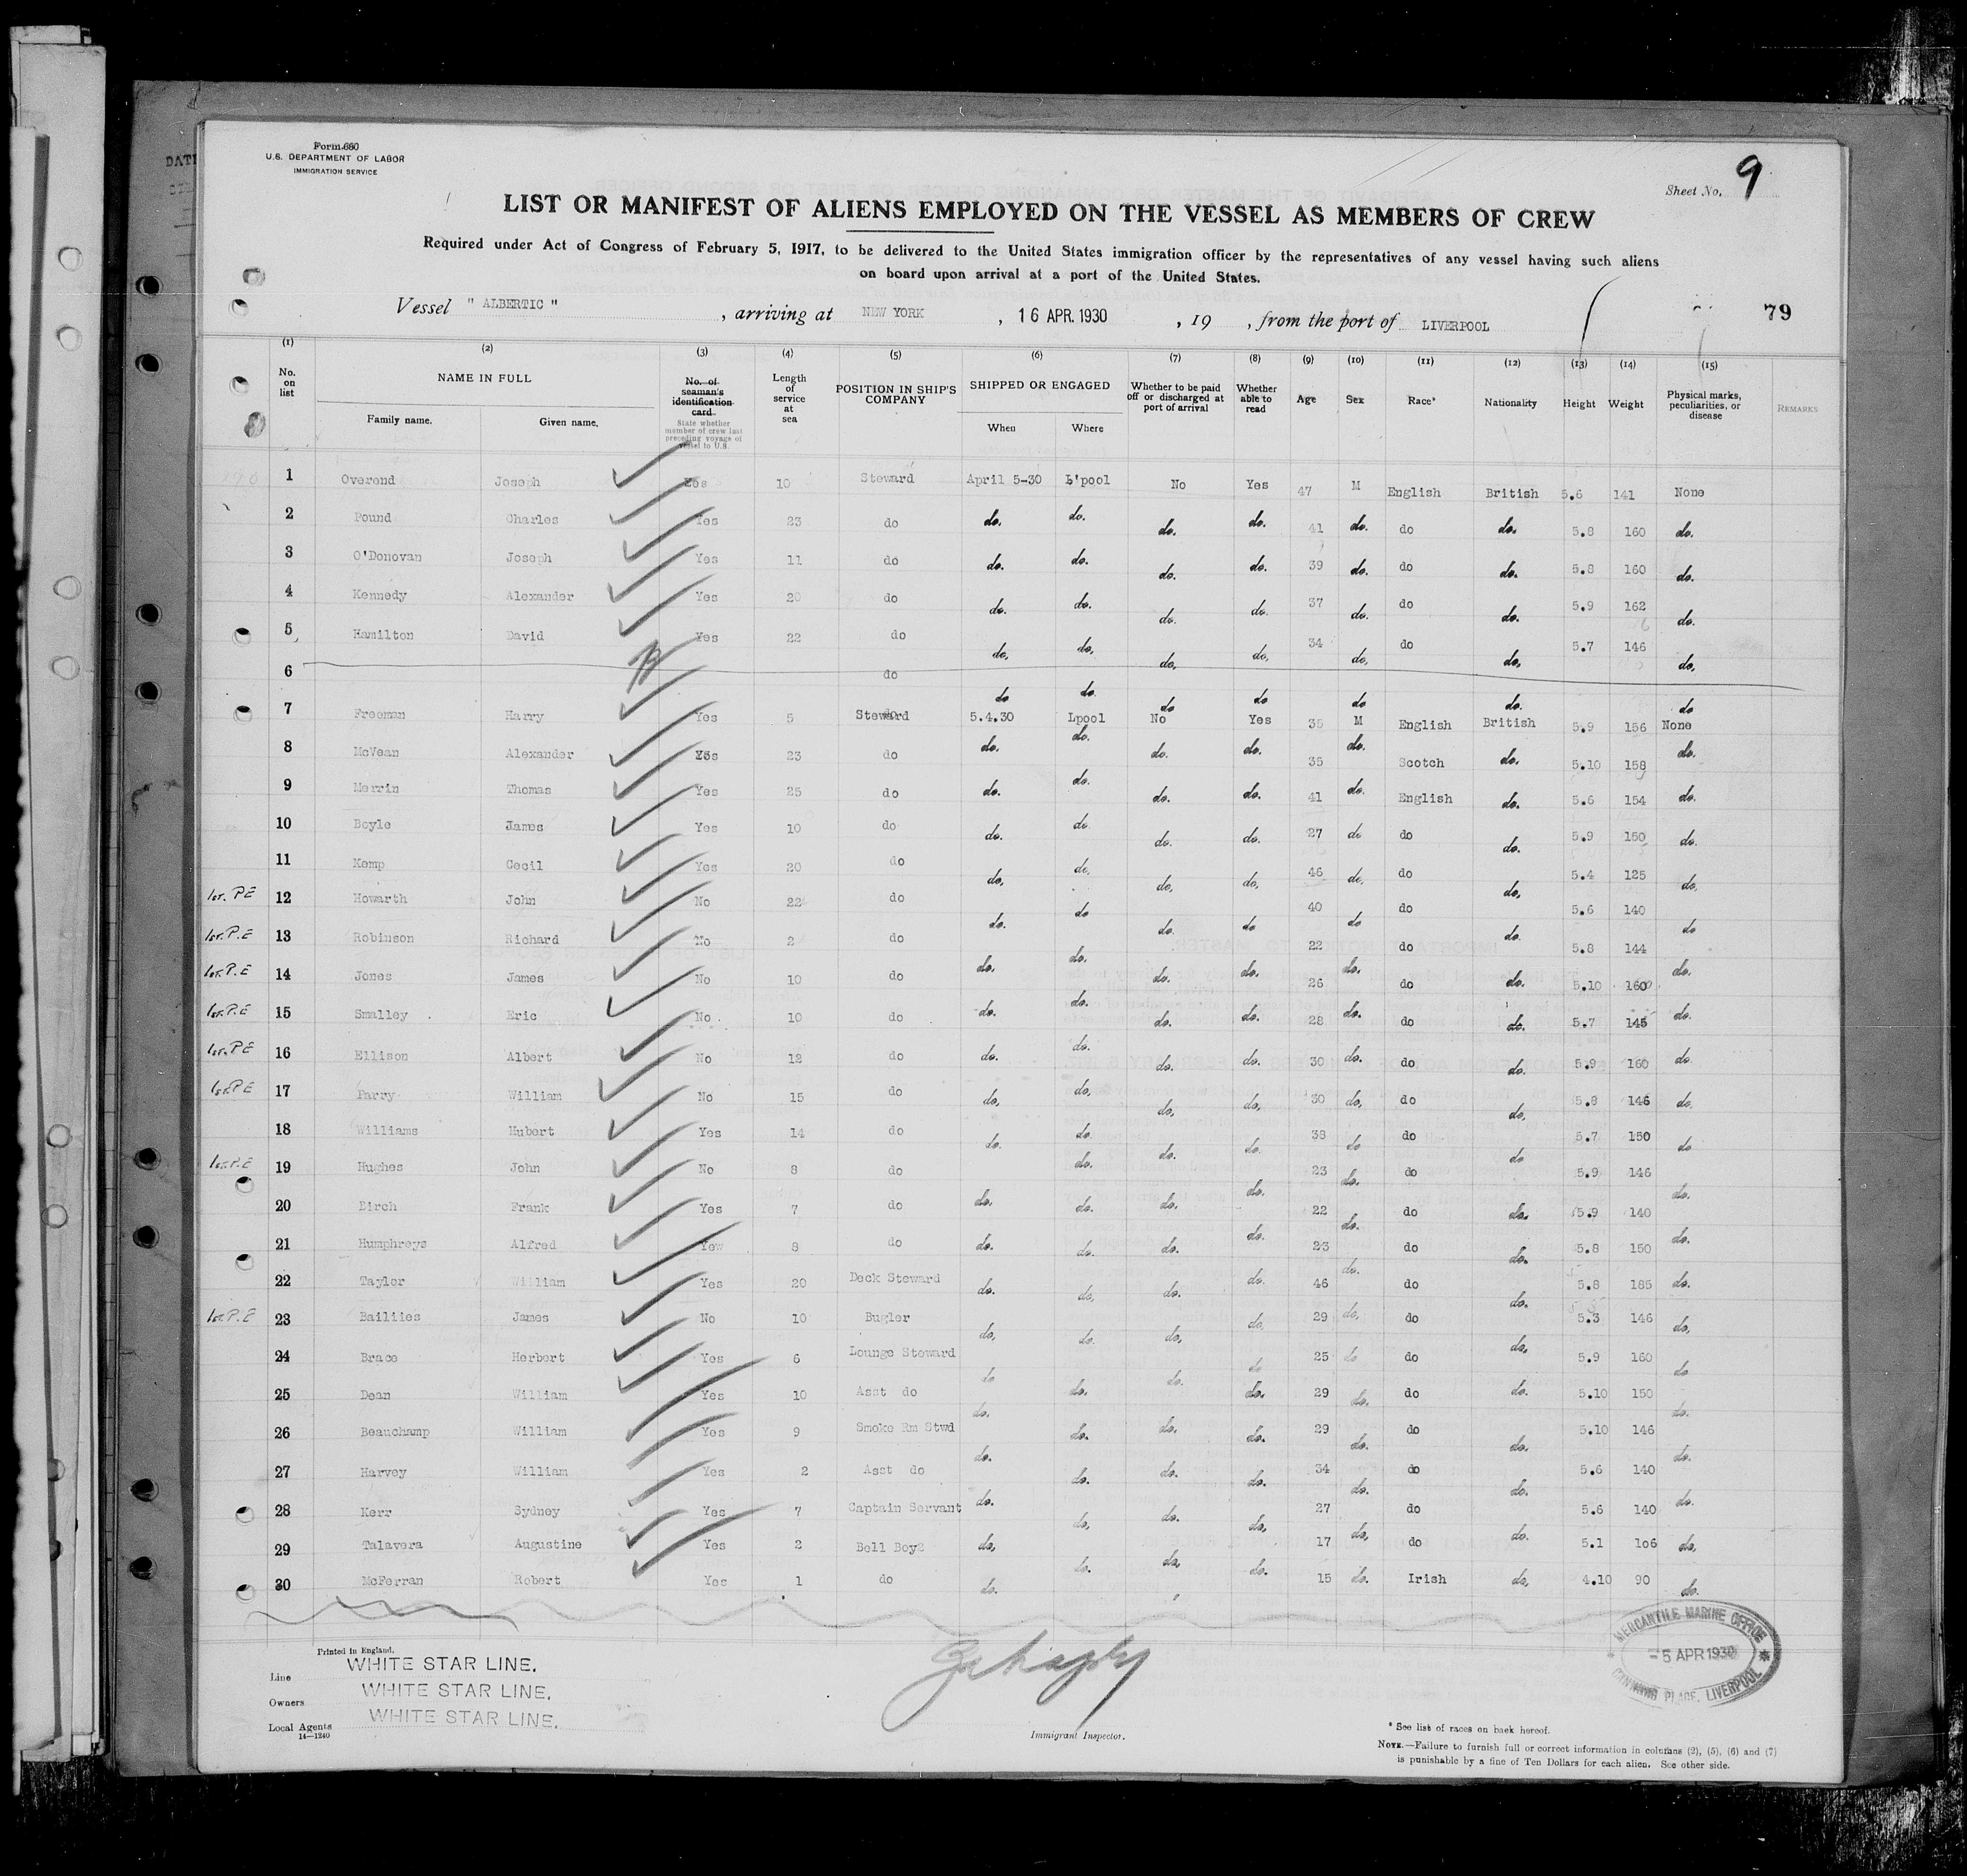 Form 680
U.S. DEPARTMENT OF LABOR
IMMIGRATION SERVICE
Sheet No. 9
LIST OR MANIFEST OF ALIENS EMPLOYED ON THE VESSEL AS MEMBERS OF CREW
Required under Act of Congress of February 5, 1917, to be delivered to the United States immigration officer by the representatives of any vessel having such aliens
on board upon arrival at a port of the United States.
Vessel " ALBERTIC ", arriving at NEW YORK, 16 APR. 1930, 19 , from the port of LIVERPOOL
79
(1) (2) (3) (4) (5) (6) (7) (8) (9) (10) (11) (12) (13) (14) (15)
No. on list NAME IN FULL Family name. Given name. No. of seaman's identification card State whether member of crew last preceding voyage of vessel to U.S. Length of service at sea POSITION IN SHIP'S COMPANY SHIPPED OR ENGAGED When Where Whether to be paid off or discharged at port of arrival Whether able to read Age Sex Race* Nationality Height Weight Physical marks, peculiarities, or disease REMARKS
1 Overend Joseph Yes 10 Steward April 5-30 L'pool No Yes 47 M English British 5.6 141 None
2 Pound Charles Yes 23 do do. do. do. do. 41 do. do do. 5.8 160 do.
3 O'Donovan Joseph Yes 11 do do. do. do. do. 39 do. do do. 5.8 160 do.
4 Kennedy Alexander Yes 20 do do. do. do. do. 37 do. do do. 5.9 162 do.
5 Hamilton David Yes 22 do do. do. do. do. 34 do. do do. 5.7 146 do.
6 do do do. do do do do. do
7 Freeman Harry Yes 5 Steward 5.4.30 Lpool No Yes 35 M English British 5.9 156 None
8 McVean Alexander Yes 23 do do. do. do. do. 35 do. Scotch do. 5.10 158 do.
9 Merrin Thomas Yes 25 do do. do. do. do. 41 do. English do. 5.6 154 do.
10 Boyle James Yes 10 do do. do. do. do. 27 do do do. 5.9 150 do.
11 Kemp Cecil Yes 20 do do. do. do. do. 46 do. do do. 5.4 125 do.
1st. P.E 12 Howarth John No 22 do do. do do. do 40 do do do. 5.6 140 do
1st. P.E 13 Robinson Richard No 2 do do. do. do. do. 22 do. do do. 5.8 144 do.
1st. P.E 14 Jones James No 10 do do. do. do. do. 26 do. do do. 5.10 160 do.
1st. P.E 15 Smalley Eric No 10 do do. do. do. do. 28 do. do do. 5.7 145 do.
1st. P.E 16 Ellison Albert No 12 do do. do. do. do. 30 do. do do. 5.9 160 do.
1st. P.E 17 Parry William No 15 do do. do. do. do. 30 do. do do. 5.8 146 do.
18 Williams Hubert Yes 14 do do. do. do. do. 38 do do do 5.7 150 do
1st. P.E 19 Hughes John No 8 do do. do. do. 23 do. do 5.9 146 do.
20 Birch Frank Yes 7 do do. do. do. do. 22 do. do do. 5.9 140 do.
21 Humphreys Alfred Yew 8 do do. do. do. do. 23 do. do do. 5.8 150 do.
22 Taylor William Yes 20 Deck Steward do. do. do. do. 46 do do. 5.8 185 do.
1st. P.E 23 Bailiies James No 10 Bugler do. do. do. do. 29 do. do do. 5.3 146 do.
24 Brace Herbert Yes 6 Lounge Steward do do. do 25 do do 5.9 160 do
25 Dean William Yes 10 Asst do do. do. do. 29 do. do do. 5.10 150 do.
26 Beauchamp William Yes 9 Smoke Rm Stwd do. do. do. do. 29 do. do do. 5.10 146 do.
27 Harvey William Yes 2 Asst do do. do. do. do. 34 do. do do. 5.6 140 do.
28 Kerr Sydney Yes 7 Captain Servant do. do. do. do. 27 do 5.6 140
29 Talavera Augustine Yes 2 Bell Boy2 do. do. do. do. 17 do. do do. 5.1 106 do.
30 McFerran Robert Yes 1 do do. do. 15 do. Irish do. 4.10 90 do.
Printed in England.
Line WHITE STAR LINE.
Owners WHITE STAR LINE.
Local Agents WHITE STAR LINE.
14—1240
Immigrant Inspector.
MERCANTILE MARINE OFFICE
-5 APR 1930
CANNING PLACE, LIVERPOOL
* See list of races on back hereof.
NOTE.—Failure to furnish full or correct information in columns (2), (5), (6) and (7)
is punishable by a fine of Ten Dollars for each alien. See other side.